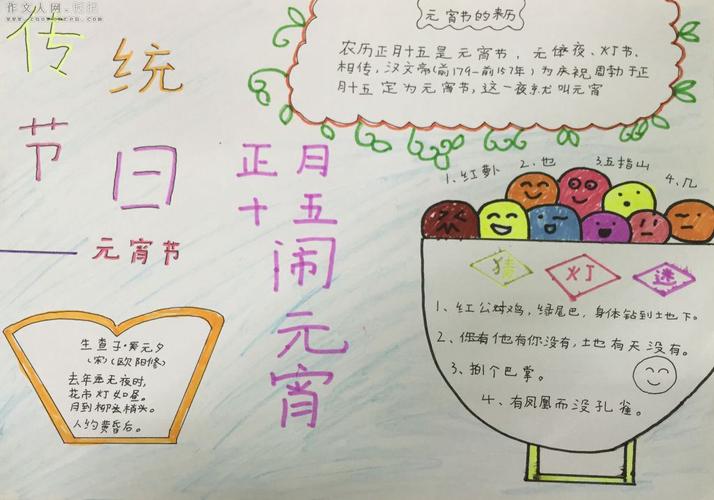 作文人网
传统
节日
——元宵节
正月
十五
闹元宵
元宵节的来历
农历正月十五是元宵节，夜、灯节，
相传，汉文帝(前179—前157年)为庆祝周勃于正
月十五定为元宵节，这一夜就叫元宵
1、红萝卜 2、也 3、五指山 4、几
猜 灯 谜
1、红公鸡，绿尾巴，身体钻到土地下。
2、你有他有你没有，土也有天没有。
3、捌个巴掌。
4、有凤凰而没孔雀。
生查子·元夕
(宋)(欧阳修)
去年夜时，
花市灯如昼。
月到柳梢头，
人约黄昏后。